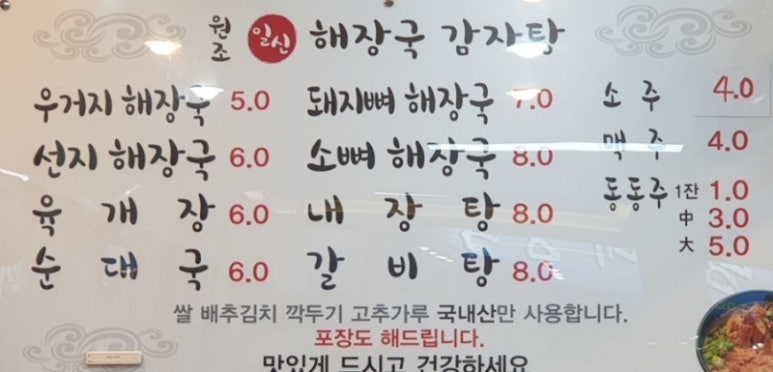 원조 일신 해장국 감자탕
우거지 해장국 5.0 돼지뼈 해장국 7.0 소주 4.0
선지 해장국 6.0 소뼈 해장국 8.0 맥주 4.0
육개장 6.0 내장탕 8.0 동동주 1잔 1.0
中 3.0
순대국 6.0 갈비탕 8.0 大 5.0
쌀 배추김치 깍두기 고추가루 국내산만 사용합니다.
포장도 해드립니다.
맛있게 드시고 건강하세요